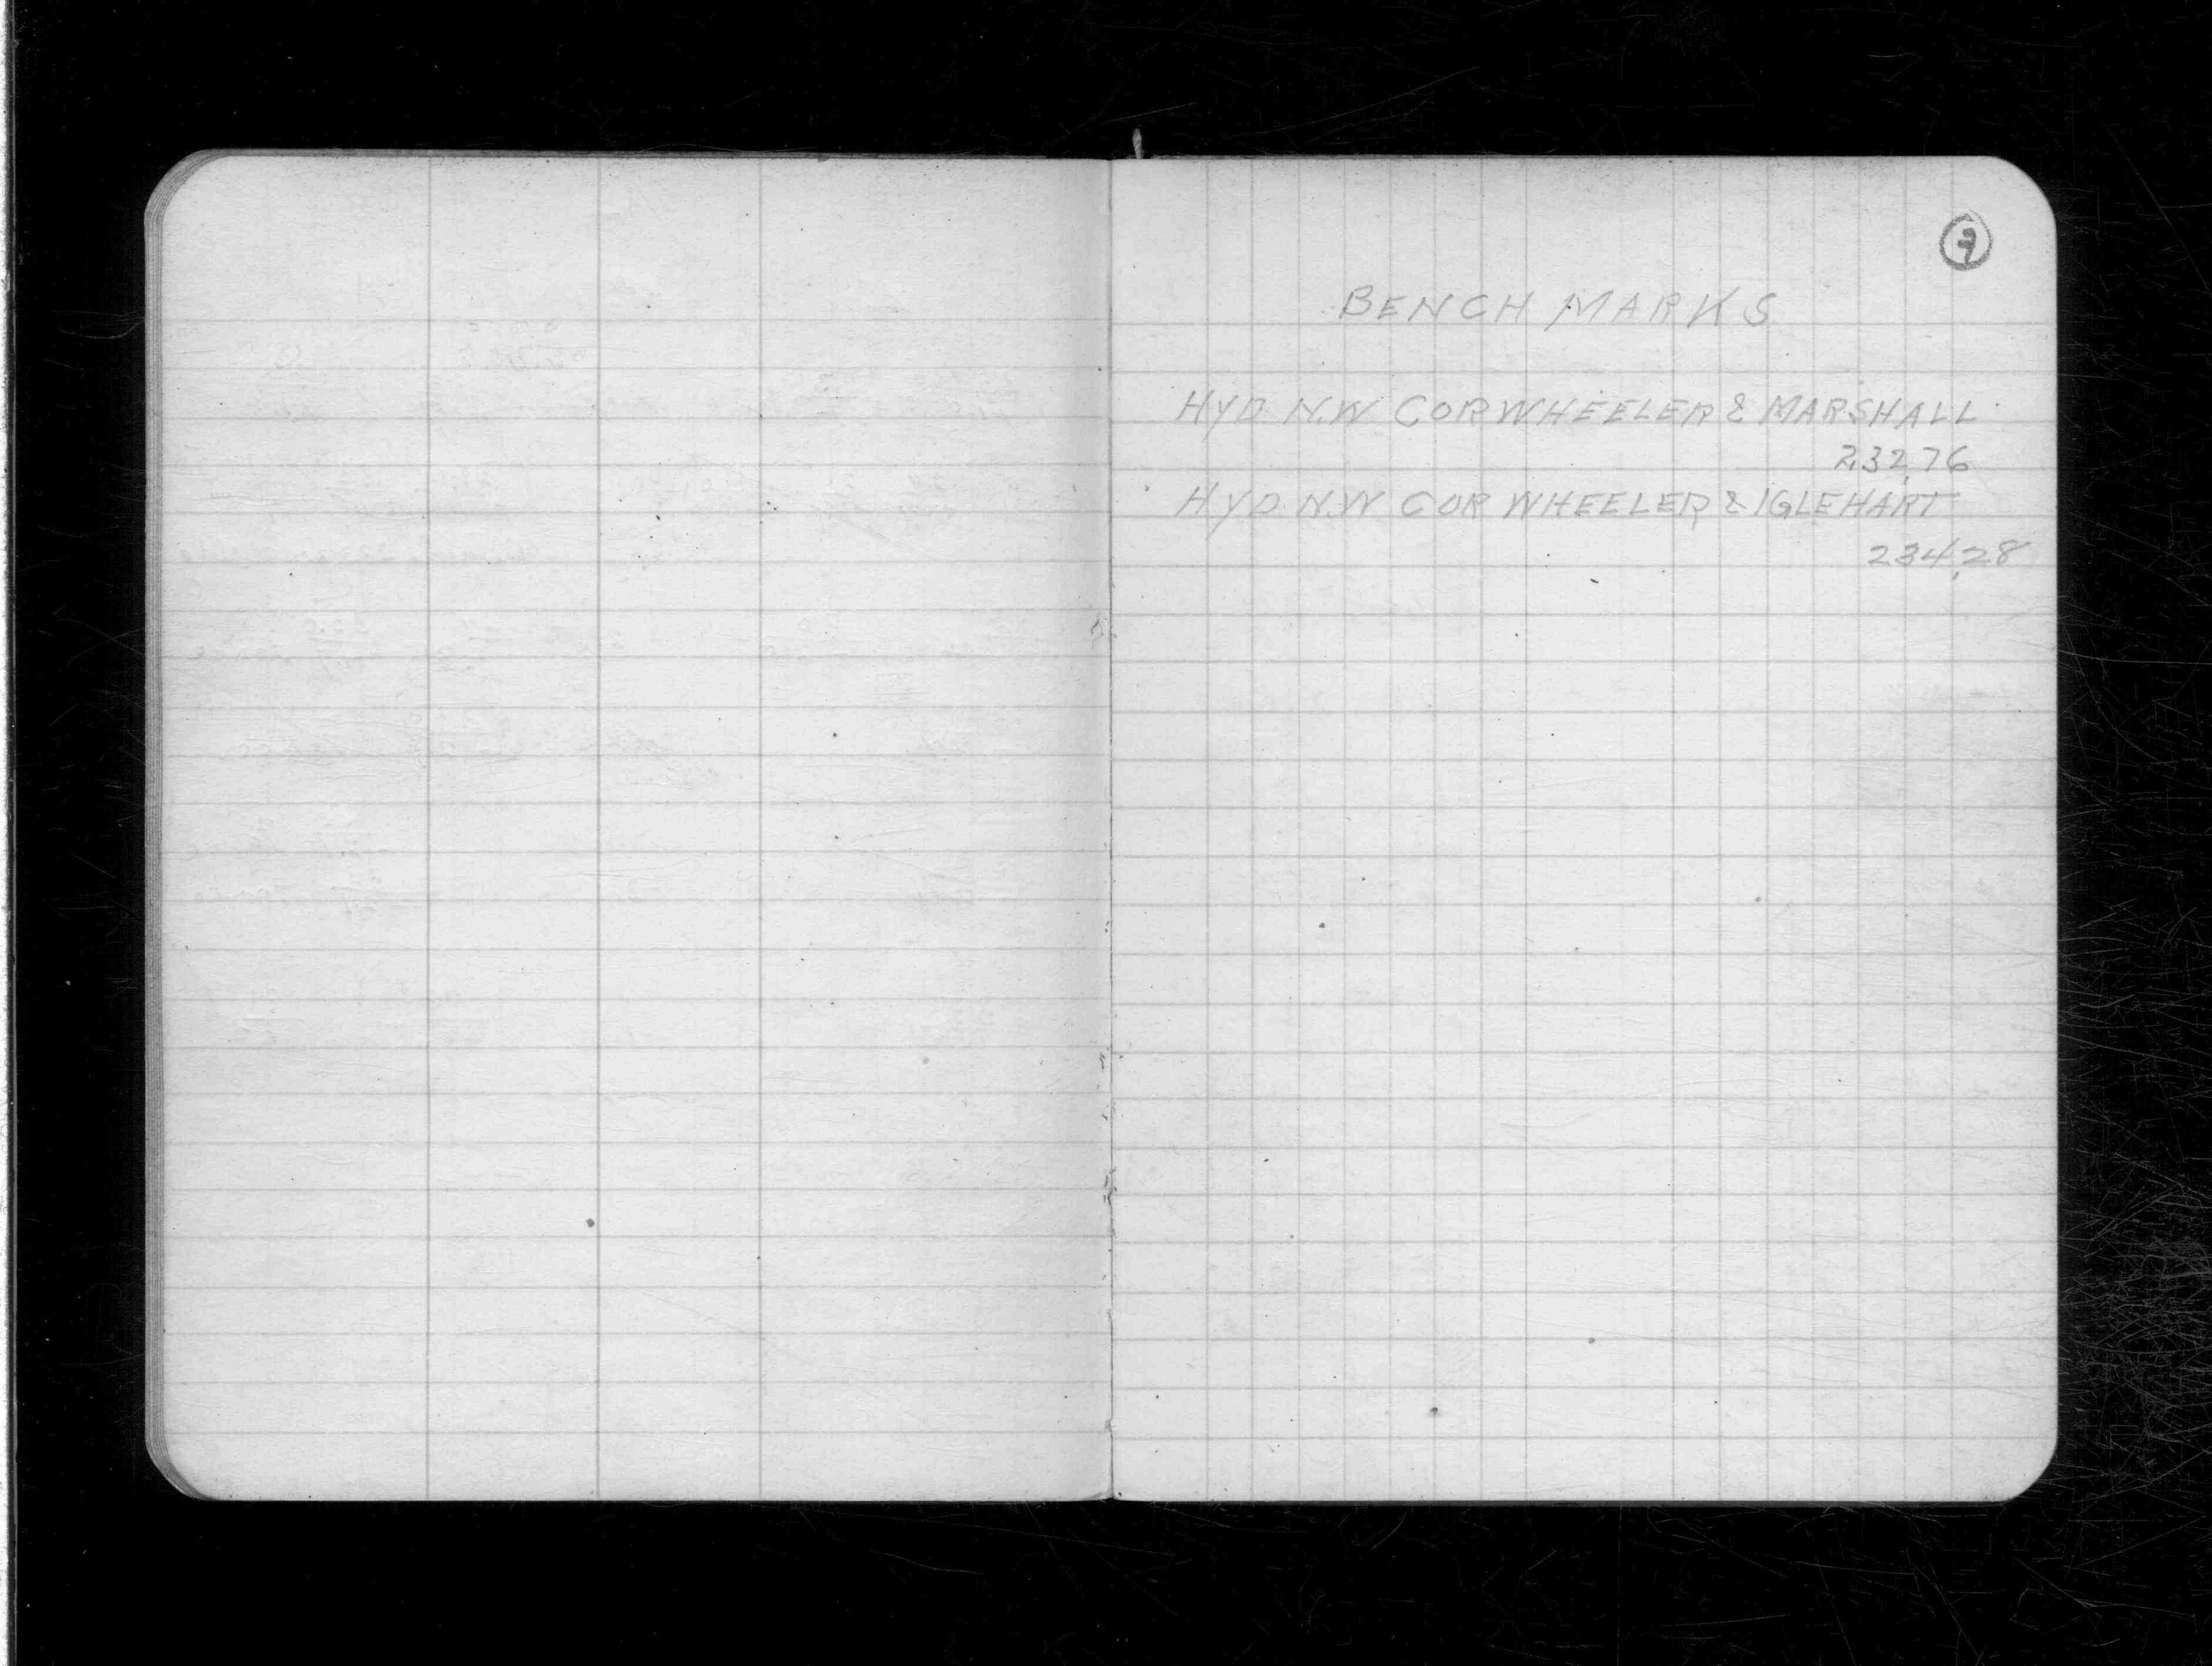 7
BENCH MARKS
HYD N.W COR WHEELER & MARSHALL
232.76
HYD N.W COR WHEELER & IGLEHART
234.28